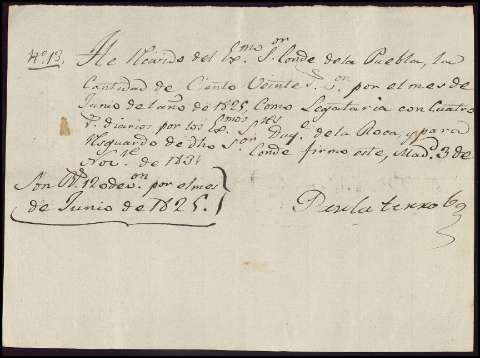 Nº. 13. He Recivido del Exmo. Sor. Conde de la Puebla, la
Cantidad de Ciento Veinte rs. von. por el mes de
Junio del año de 1825, Como Legataria con Cuatro
rs. diarios por los Exmos. Sres. Duqs. de la Roca, y para
Resguardo de dho Sor. Conde firmo este, Madd. 3 de
Nove. de 1831
Son Rs. 120 de von. por el mes
de Junio de 1825.